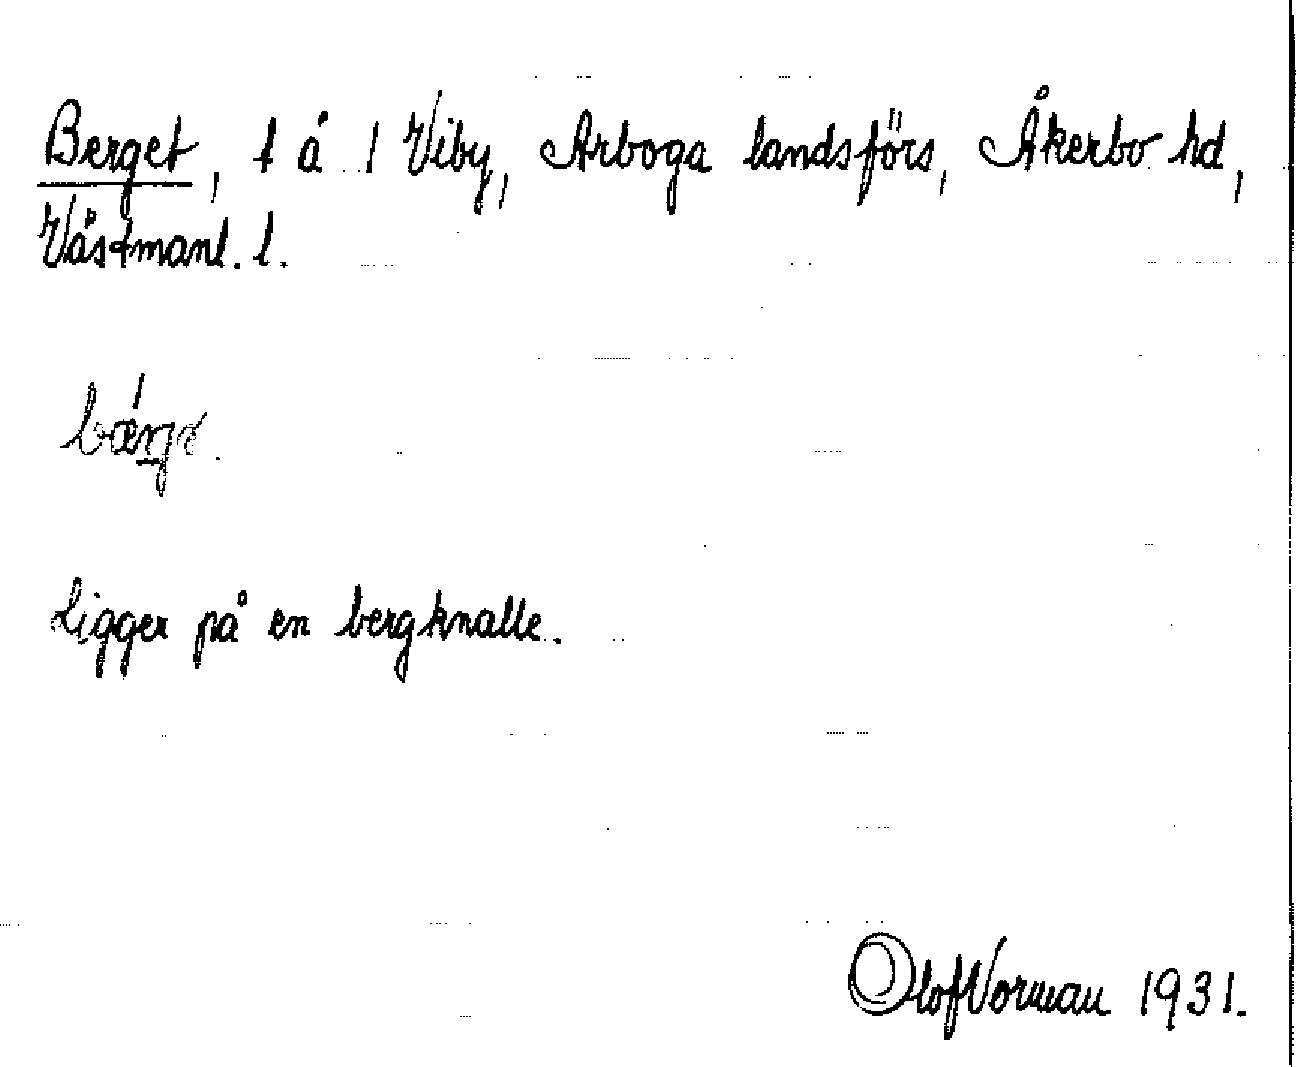 Berget, t å 1 Viby, Arboga landsförs, Åkerbo hd,
Västmanl. l.
Ligger på en bergknalle.
Olof Vorman 1931.